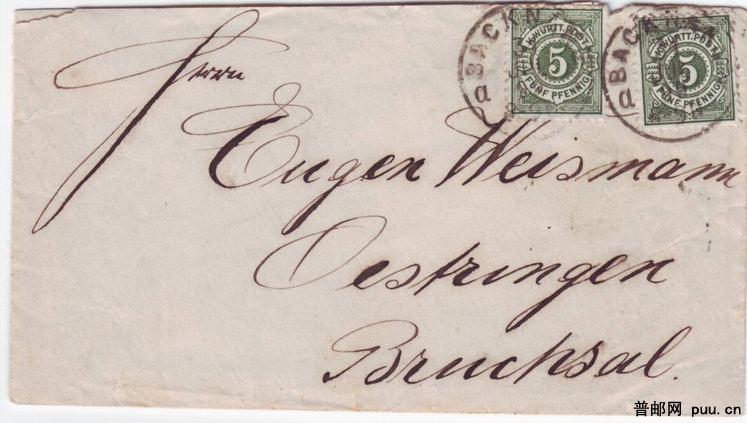 BACKN
K.WÜRTT.POST
5
FÜNF PFENNIG
a
BACKN
K.WÜRTT.POST
5
FÜNF PFENNIG
a
Herrn
Eugen Weismann
Oestringen
Bruchsal.
普邮网 puu.cn